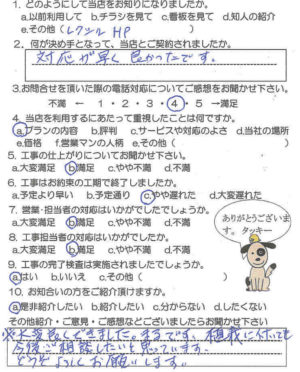 1. どのようにして当店をお知りになりましたか。
a.以前利用して b.チラシを見て c.看板を見て d.知人の紹介
e.その他(レクシル HP )
2. 何が決め手となって、当店とご契約されましたか。
対応が早く良かったです。
3.お問合せを頂いた際の電話対応についてご感想をお聞かせ下さい。
不満 ← 1・2・3・4・5 →満足
4. 当店を利用するにあたって重視したことは何ですか。
a.プランの内容 b.評判 c.サービスや対応のよさ d.当社の場所
e.価格 f.営業マンの人柄 e.その他( )
5. 工事の仕上がりについてお聞かせ下さい。
a.大変満足 b.満足 c.やや不満 d.不満
6. 工事はお約束の工期で終了しましたか。
a.予定より早い b.予定通り c.やや遅れた d.大変遅れた
7. 営業・担当者の対応はいかがでしたでしょうか。
a.大変満足 b.満足 c.やや不満 d.不満
8. 工事担当者の対応はいかがでしたか。
a.大変満足 b.満足 c.やや不満 d.不満
9. 工事の完了検査は実施されましたでしょうか。
a.はい b.いいえ c.その他( )
10. お知合いの方をご紹介頂けますか。
a.是非紹介したい b.紹介したい c.分からない d.したくない
その他紹介・ご意見・ご感想などございましたらお聞かせ下さい
ありがとうございます。タッキー
※大変良くできました。まるです。植栽に付いても
今後ご相談したいと思っています。
どうぞよろしくお願いします。